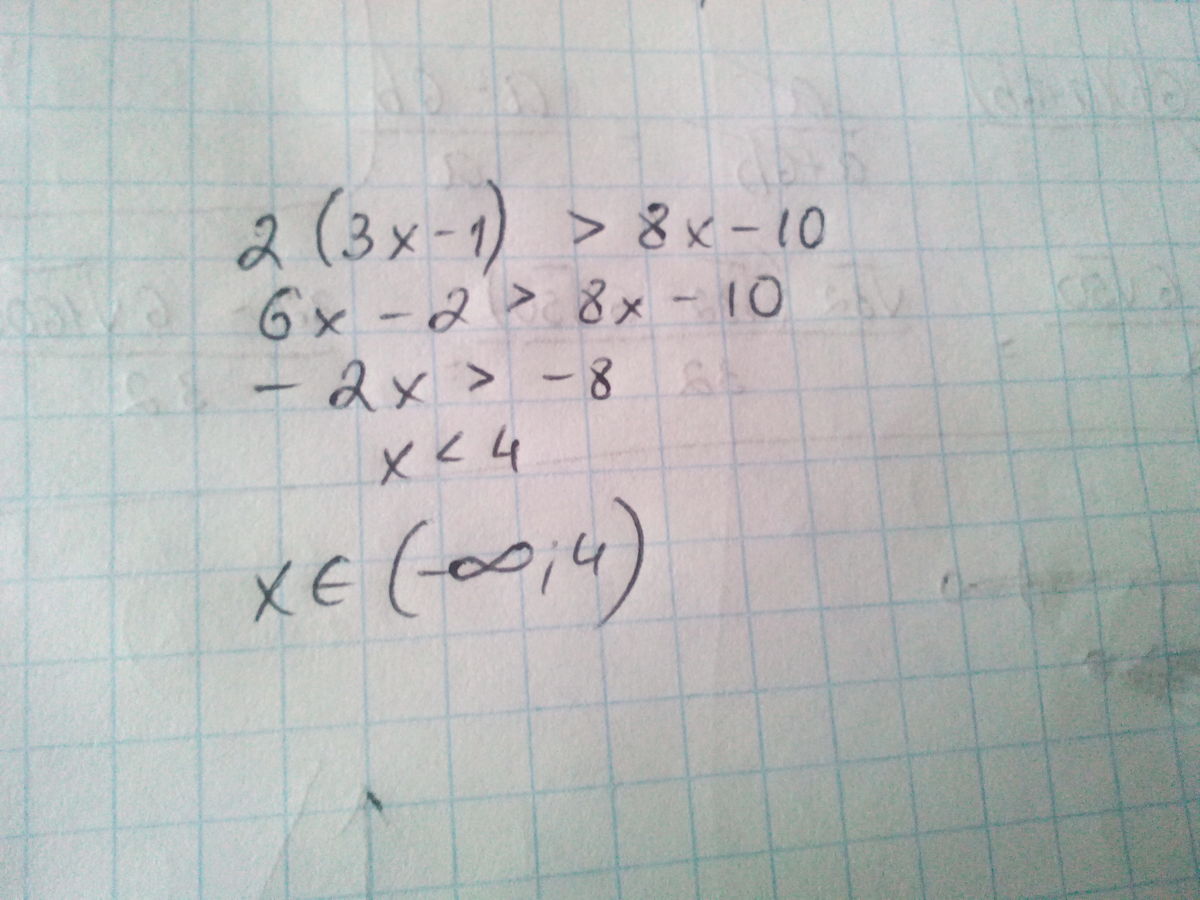 2 (3x-1) > 8x-10
6x - 2 > 8x - 10
- 2x > -8
x < 4
x ∈ (-∞; 4)